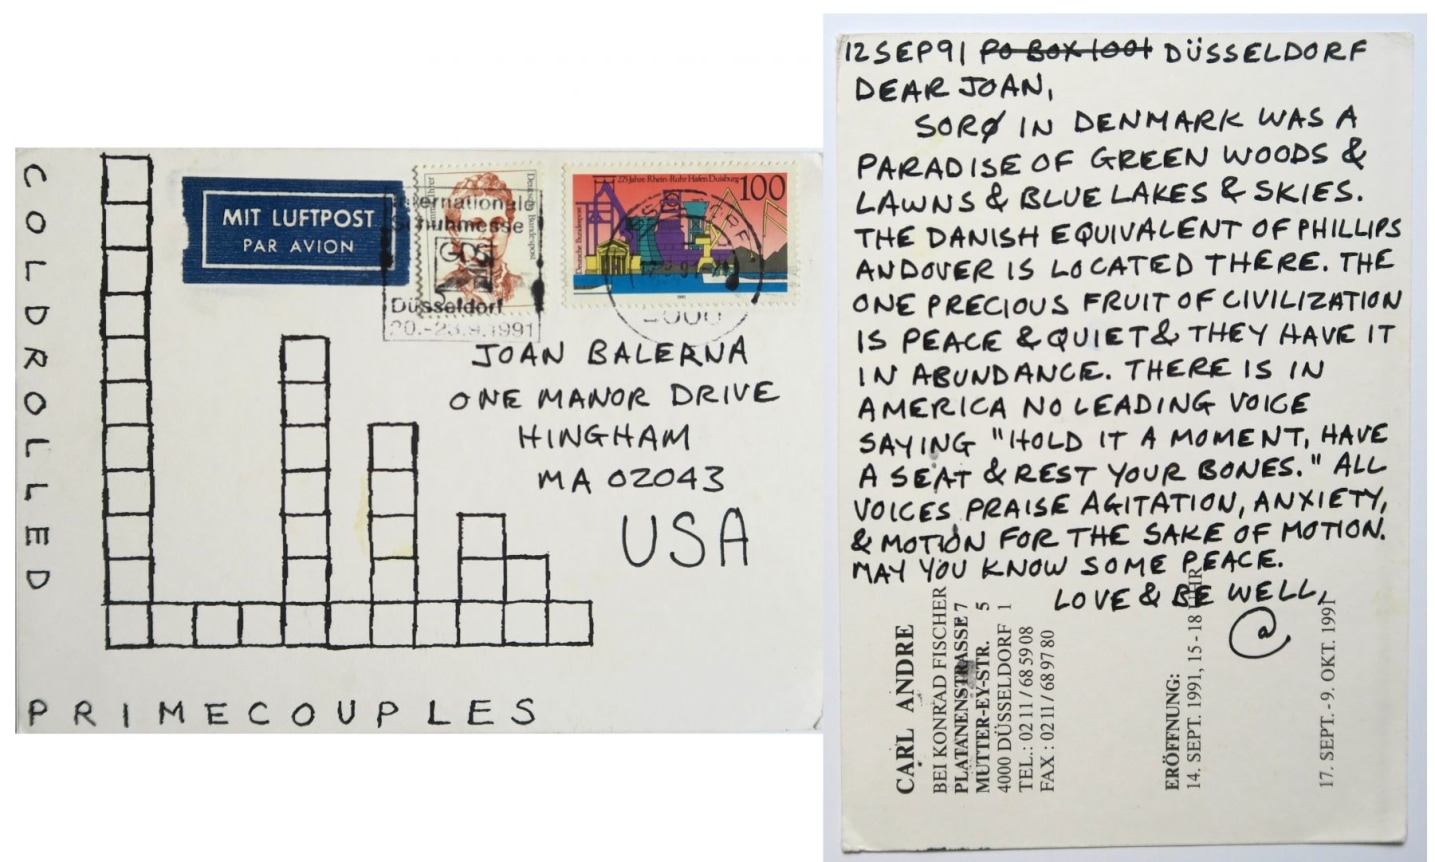 COLDROLLED
MIT LUFTPOST
PAR AVION
Internationale
Schuhmesse
GDS
Düsseldorf
20.-23.9.1991
Deutsche Bundespost
225 Jahre Rhein-Ruhr Hafen Duisburg
100
Deutsche Bundespost
JOAN BALERNA
ONE MANOR DRIVE
HINGHAM
MA 02043
USA
PRIMECOUPLES
12 SEP 91 PO BOX 1001 DÜSSELDORF
DEAR JOAN,
SORØ IN DENMARK WAS A
PARADISE OF GREEN WOODS &
LAWNS & BLUE LAKES & SKIES.
THE DANISH EQUIVALENT OF PHILLIPS
ANDOVER IS LOCATED THERE. THE
ONE PRECIOUS FRUIT OF CIVILIZATION
IS PEACE & QUIET & THEY HAVE IT
IN ABUNDANCE. THERE IS IN
AMERICA NO LEADING VOICE
SAYING "HOLD IT A MOMENT, HAVE
A SEAT & REST YOUR BONES." ALL
VOICES PRAISE AGITATION, ANXIETY,
& MOTION FOR THE SAKE OF MOTION.
MAY YOU KNOW SOME PEACE.
LOVE & BE WELL,
@
CARL ANDRE
BEI KONRAD FISCHER
PLATANENSTRASSE 7
MUTTER-EY-STR. 5
4000 DÜSSELDORF 1
TEL.: 02 11 / 68 59 08
FAX : 02 11 / 68 97 80
ERÖFFNUNG:
14. SEPT. 1991, 15 - 18 UHR
17. SEPT. - 9. OKT. 1991